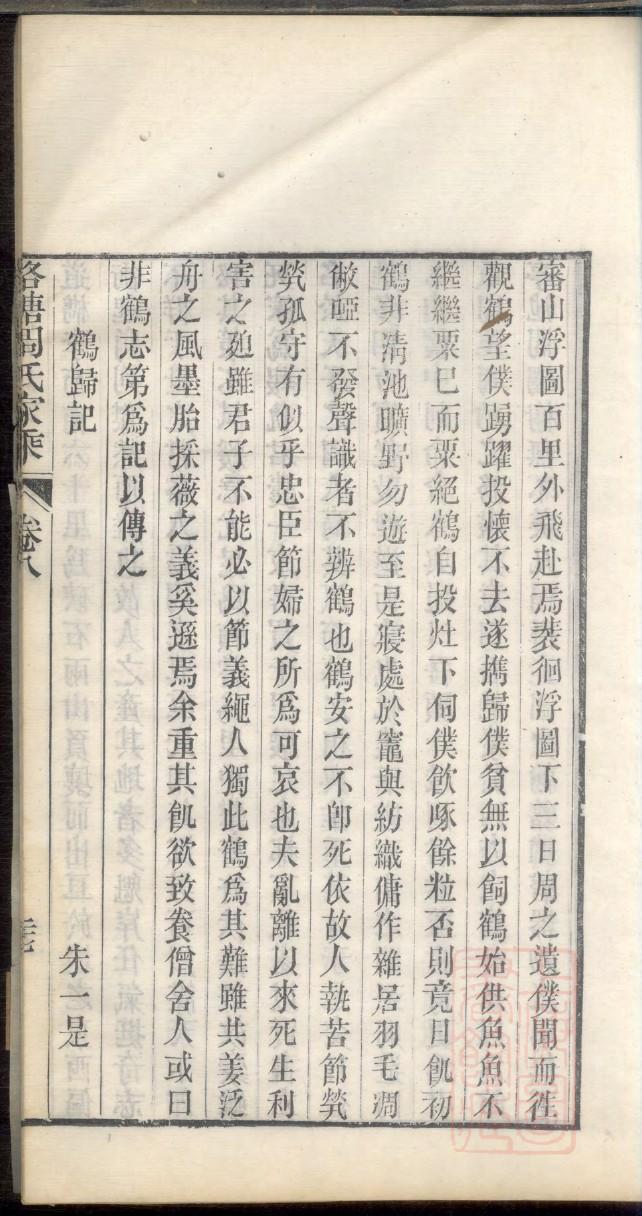 審山浮圖百里外飛赴焉裴徊浮圖下三日周之遺僕聞而徃
觀鶴望僕踴躍投懷不去遂擕歸僕貧無以飼鶴始供魚魚不
繼繼粟巳而粟絕鶴自投灶下伺僕飲啄餘粒否則竟日飢初
鶴非淸池曠野勿遊至是寢處於竈與紡織傭作雜居羽毛凋
敝啞不發聲識者不辨鶴也鶴安之不卽死依故人執苦節煢
煢孤守有似乎忠臣節婦之所爲可哀也夫亂離以來死生利
害之廹雖君子不能必以節義繩人獨此鶴爲其難雖共姜泛
舟之風墨胎採薇之義奚遜焉余重其飢欲致養僧舍人或曰
非鶴志第爲記以傳之
鶴歸記　朱一是
洛塘周氏家乘　卷八